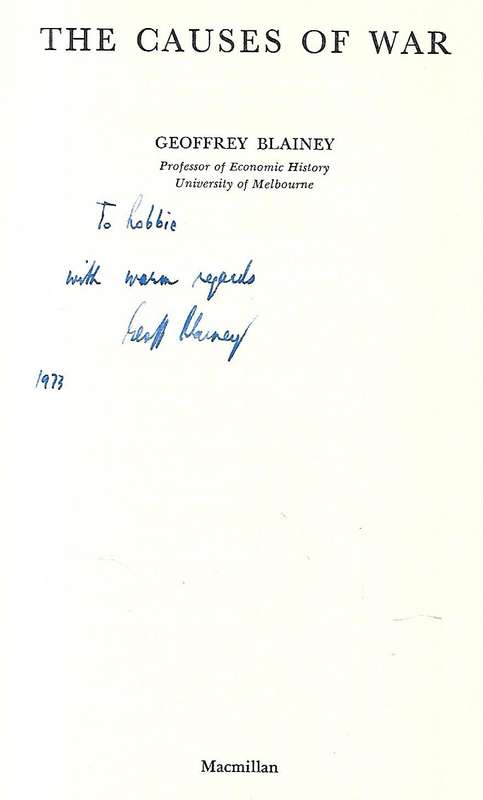 THE CAUSES OF WAR
GEOFFREY BLAINEY
Professor of Economic History
University of Melbourne
To Robbie
with warm regards
Geoff Blainey
1973
Macmillan